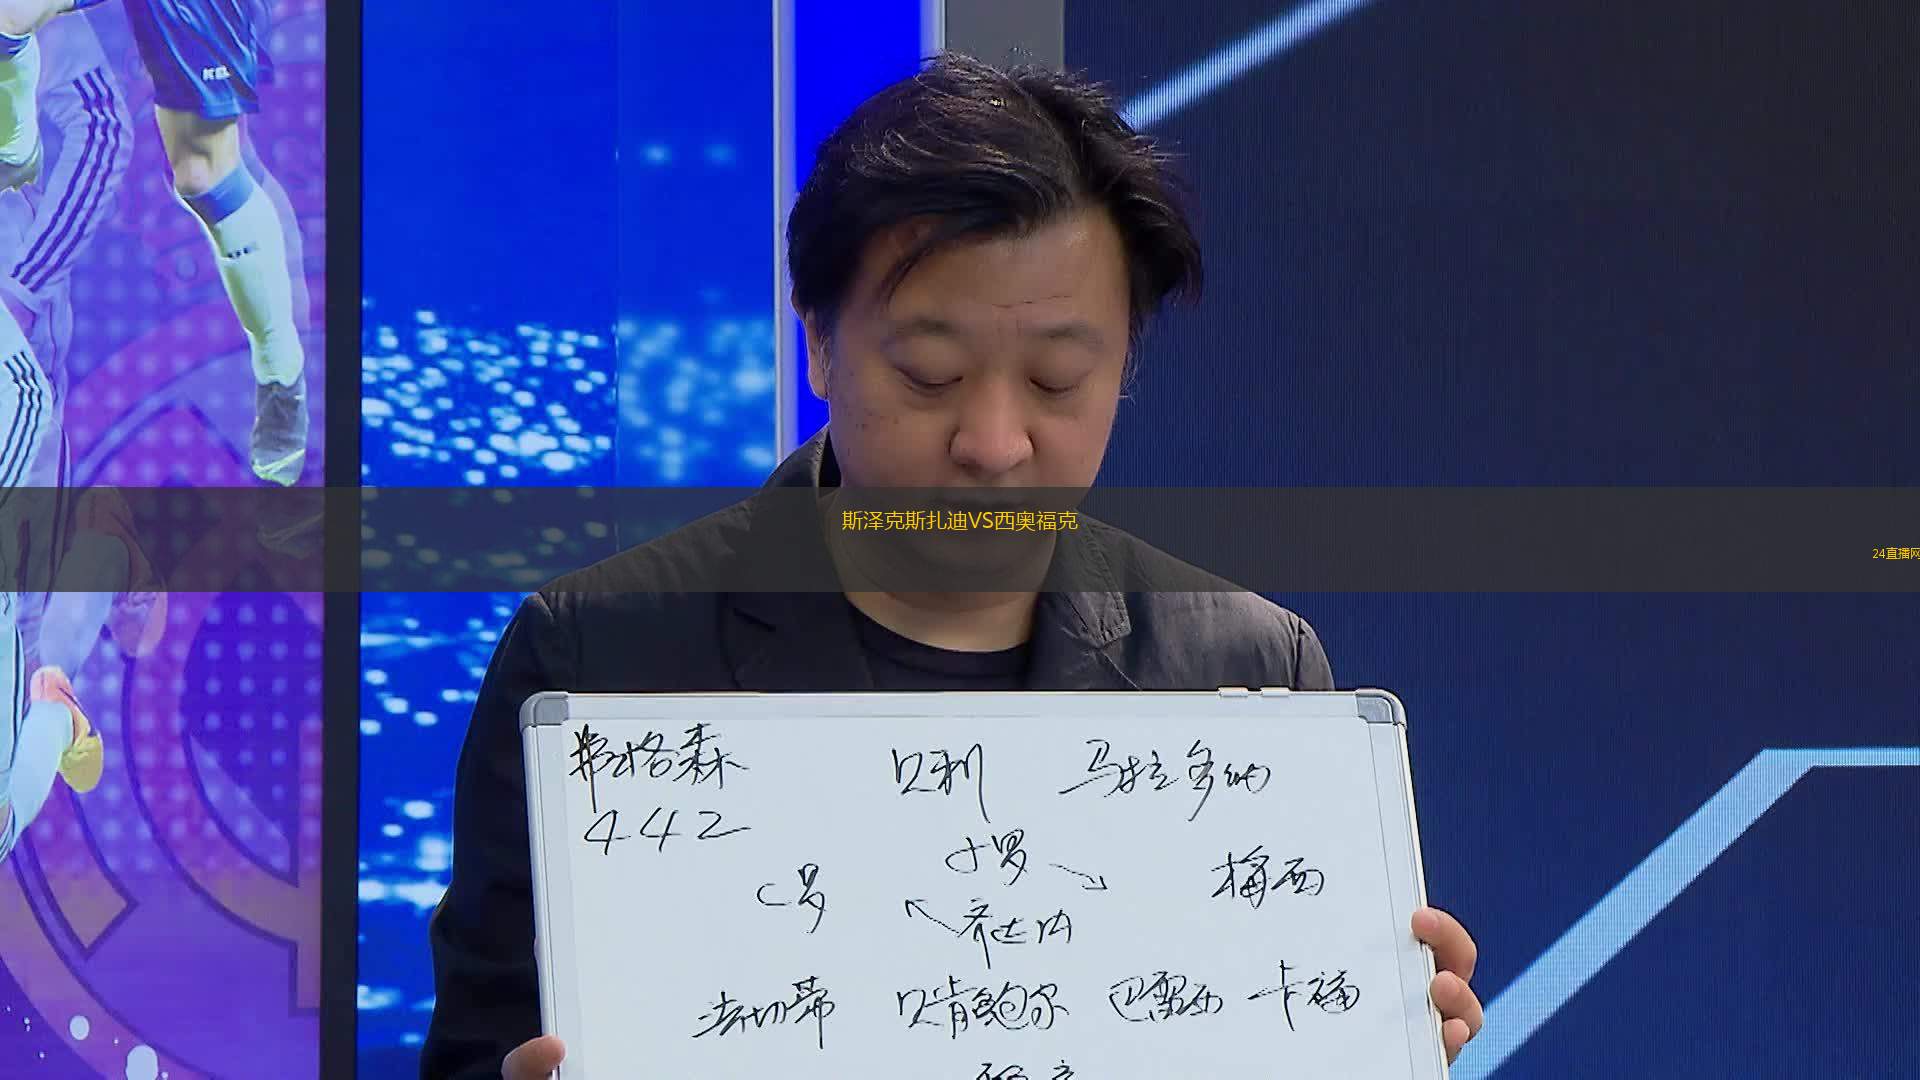 斯泽克斯扎迪VS西奥福克
24直播网
弗格森 贝利 马拉多纳
442
小罗
C罗 梅西
齐达内
法切蒂 贝肯鲍尔 巴雷西 卡福